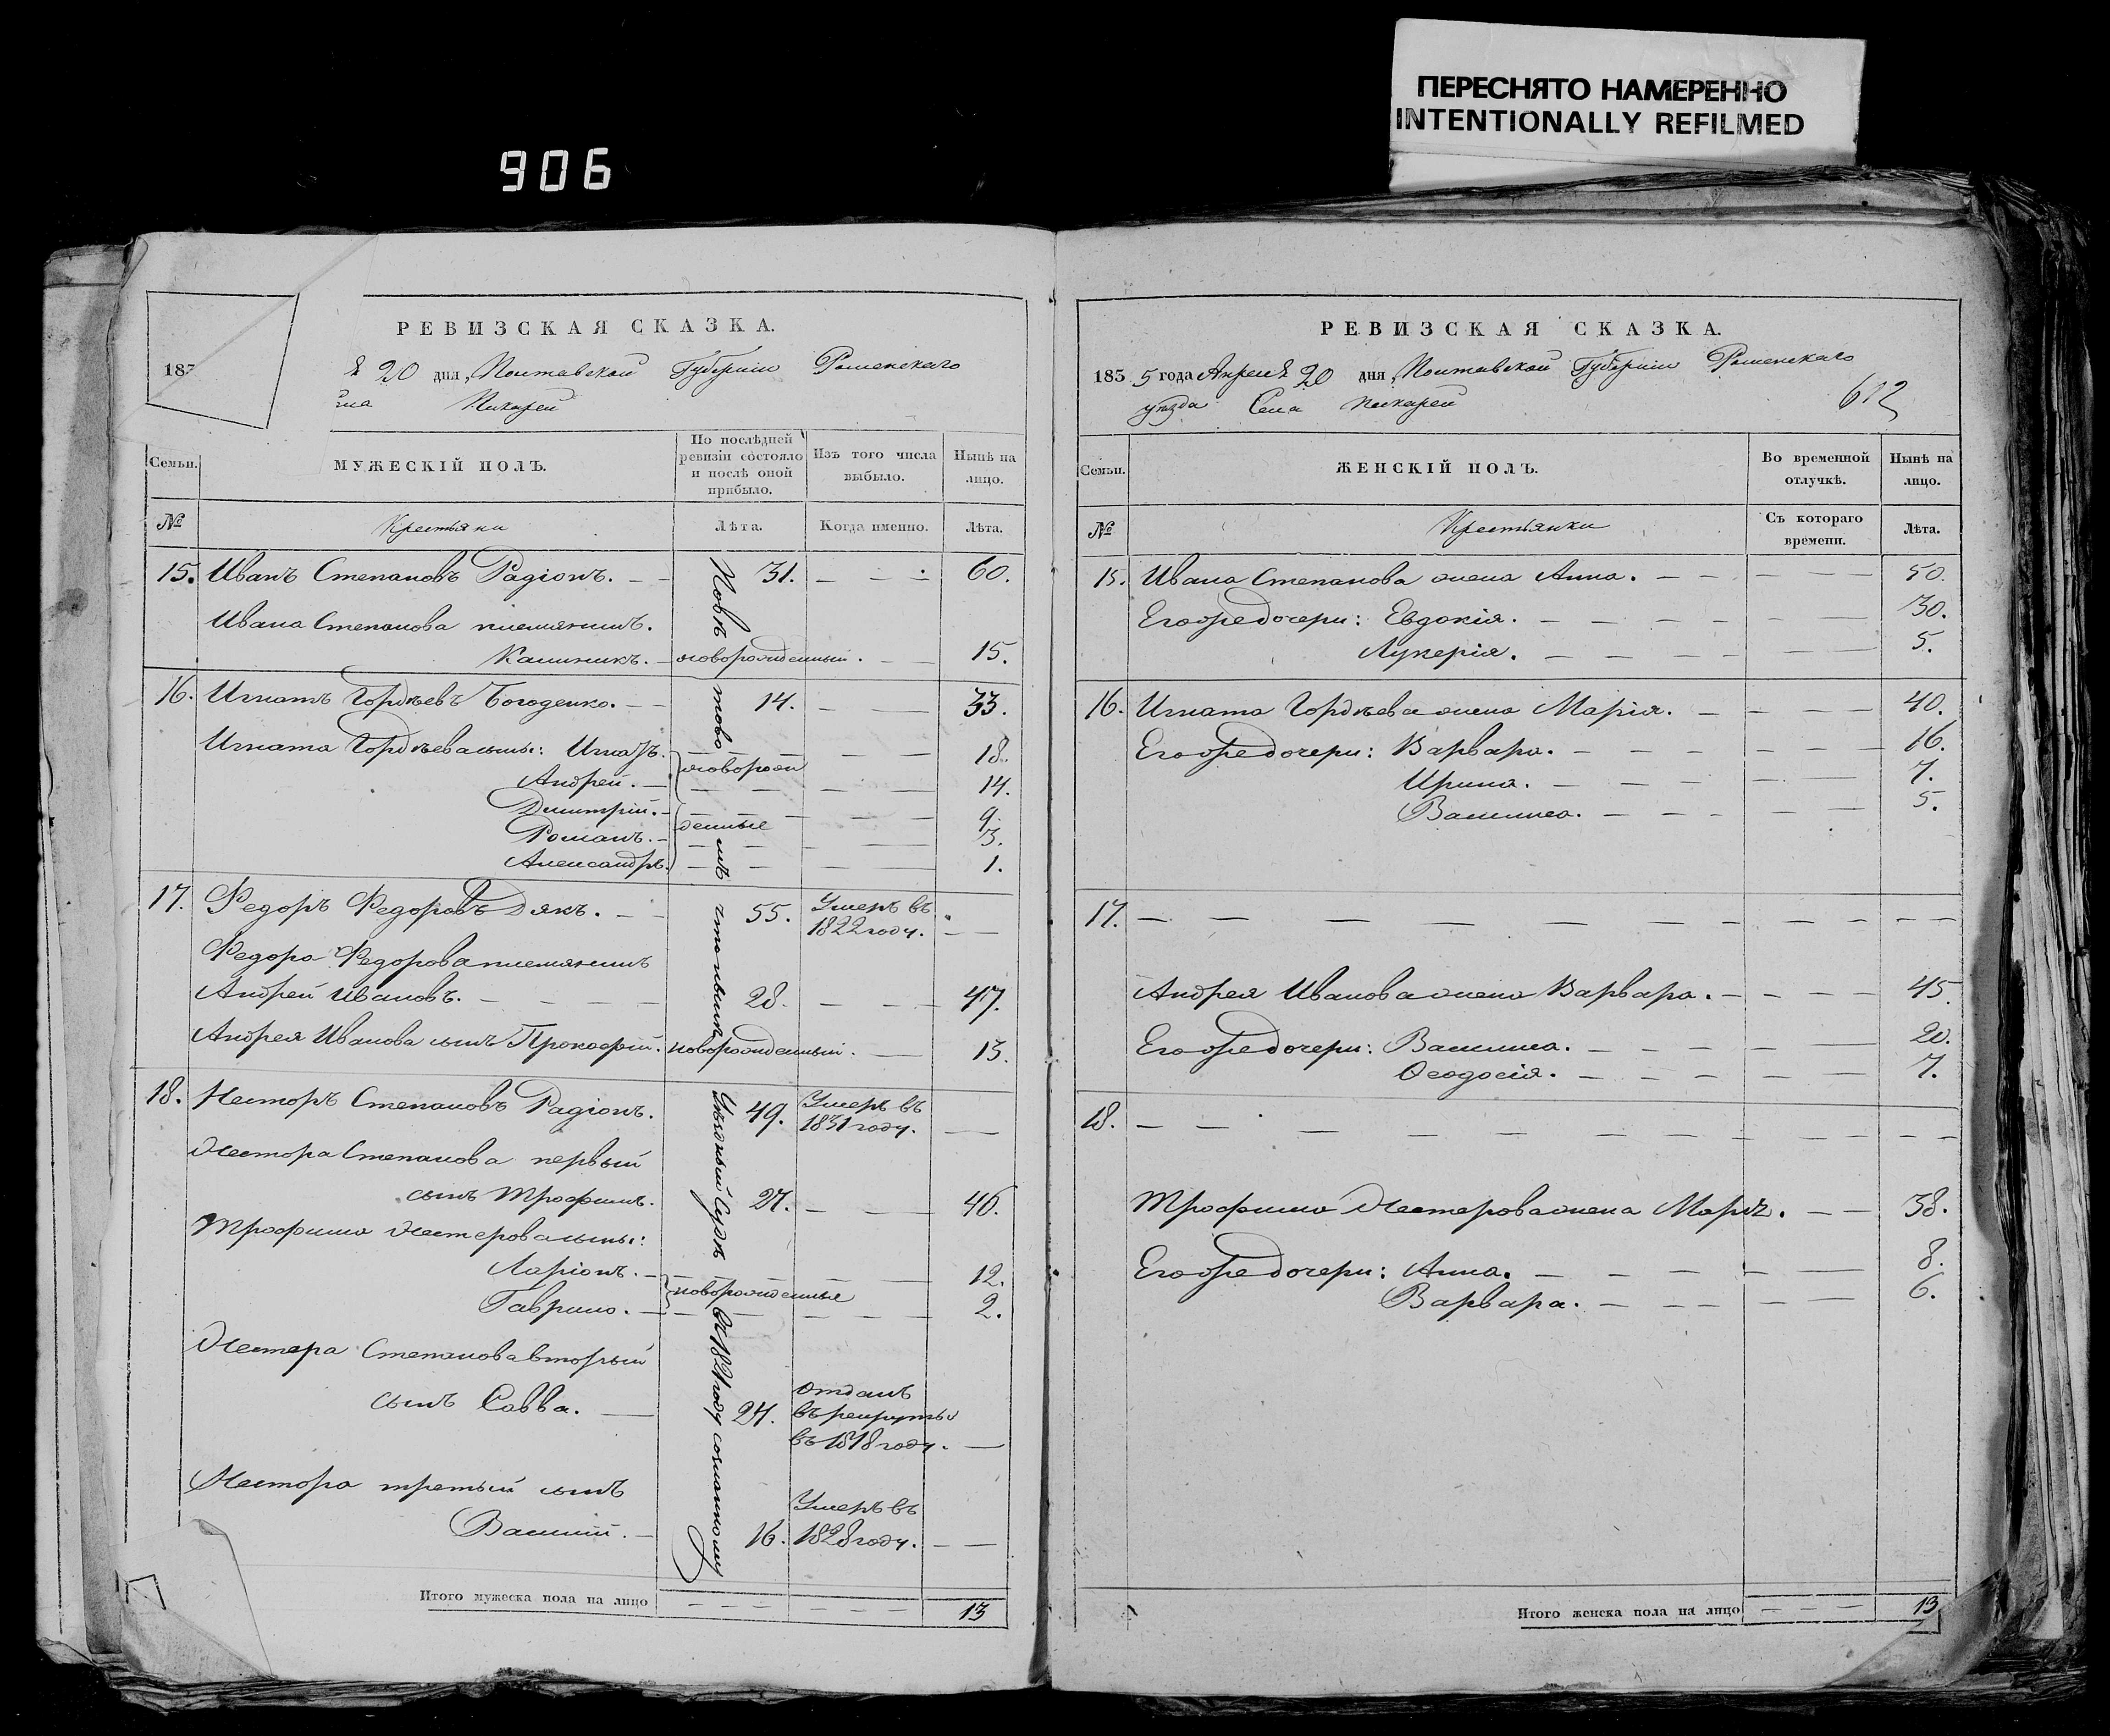 ПЕРЕСНЯТО НАМЕРЕННО
INTENTIONALLY REFILMED
906
РЕВИЗСКАЯ СКАЗКА.
183
20 дня, Полтавской Губернии Роменскаго
Пекарей
Семьи.
МУЖЕСКІЙ ПОЛЪ.
По послѣдней ревизіи состояло и послѣ оной прибыло.
Изъ того числа выбыло.
Нынѣ на лицо.
№
Крестьяне
Лѣта.
Когда именно.
Лѣта.
15. Иванъ Степановъ Радіонъ. 31. 60.
Ивана Степанова племянникъ.
Калиникъ. новорожденный. 15.
16. Игнатъ Гордѣевъ Богоденко. 14. 33.
Игната Гордѣева сыны: 18.
Андрей. новорож 14.
Дмитрій. 9.
Романъ. денные 3.
Александръ. 1.
17. Федоръ Федоровъ Дякъ. 55. Умеръ въ 1822 году.
Федора Федорова племянникъ
Андрей Ивановъ. 28. 47.
Андрея Иванова сынъ Прокофій. новорожденный. 13.
18. Несторъ Степановъ Радіонъ. 49. Умеръ въ 1831 году.
Нестора Степанова первый
сынъ Трофимъ. 27. 46.
Трофима Нестерова сыны:
Ларіонъ. 12.
Гаврило. новорожденные 2.
Нестера Степанова вторый
сынъ Савва. 24. Отданъ въ рекруты въ 1818 году.
Нестора третый сынъ
Василій. 16. Умеръ въ 1828 году.
Уѣздный Судъ въ 1821 году
Итого мужеска пола на лицо 13
РЕВИЗСКАЯ СКАЗКА.
1835 года Апреля 20 дня, Полтавской Губернии Роменскаго
уѣзда Села Пекарей
612
Семьи.
ЖЕНСКІЙ ПОЛЪ.
Во временной отлучкѣ.
Нынѣ на лицо.
№
Крестьянки
Съ котораго времени.
Лѣта.
15. Ивана Степанова жена Анна. 50.
Его же дочери: Евдокія. 30.
Лукерія. 5.
16. Игната Гордѣева жена Марія. 40.
Его же дочери: Варвара. 16.
Ирина. 7.
Василиса. 5.
17.
Андрея Иванова жена Варвара. 45.
Его же дочери: Василиса. 20.
Ѳеодосія. 7.
18.
Трофима Нестерова жена 38.
Его же дочери: Анна. 8.
Варвара. 6.
Итого женска пола на лицо 13